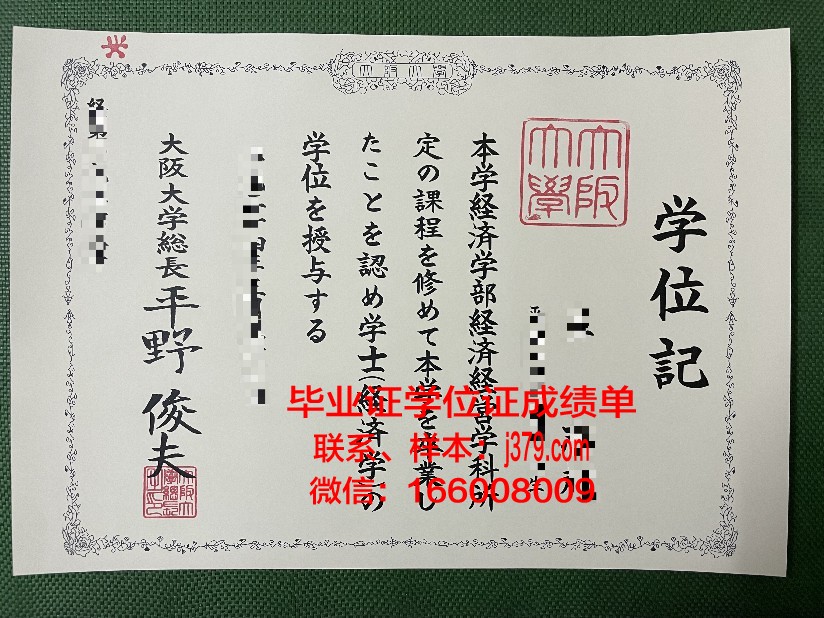 学位記
大阪
大學
本学経済学部経済経営学科所
定の課程を修めて本学を卒業し
たことを認め学士(経済学)の
学位を授与する
大阪大学総長 平野 俊夫
毕业证学位证成绩单
联系、样本：j379.com
微信：166008009